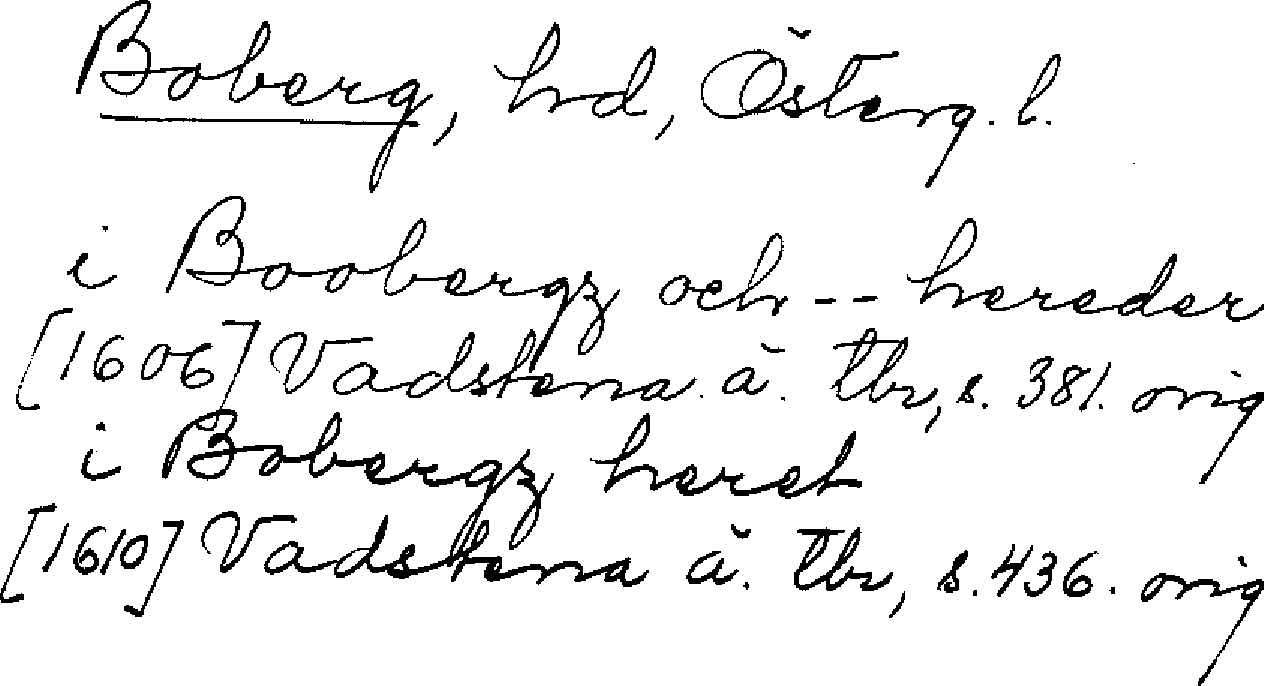 Boberg, hd, Österg. l.
i Boobergz och -- hereder
[1606] Vadstena ä. tbr, s. 381. orig
i Bobergz heret
[1610] Vadstena ä. tbr, s. 436. orig